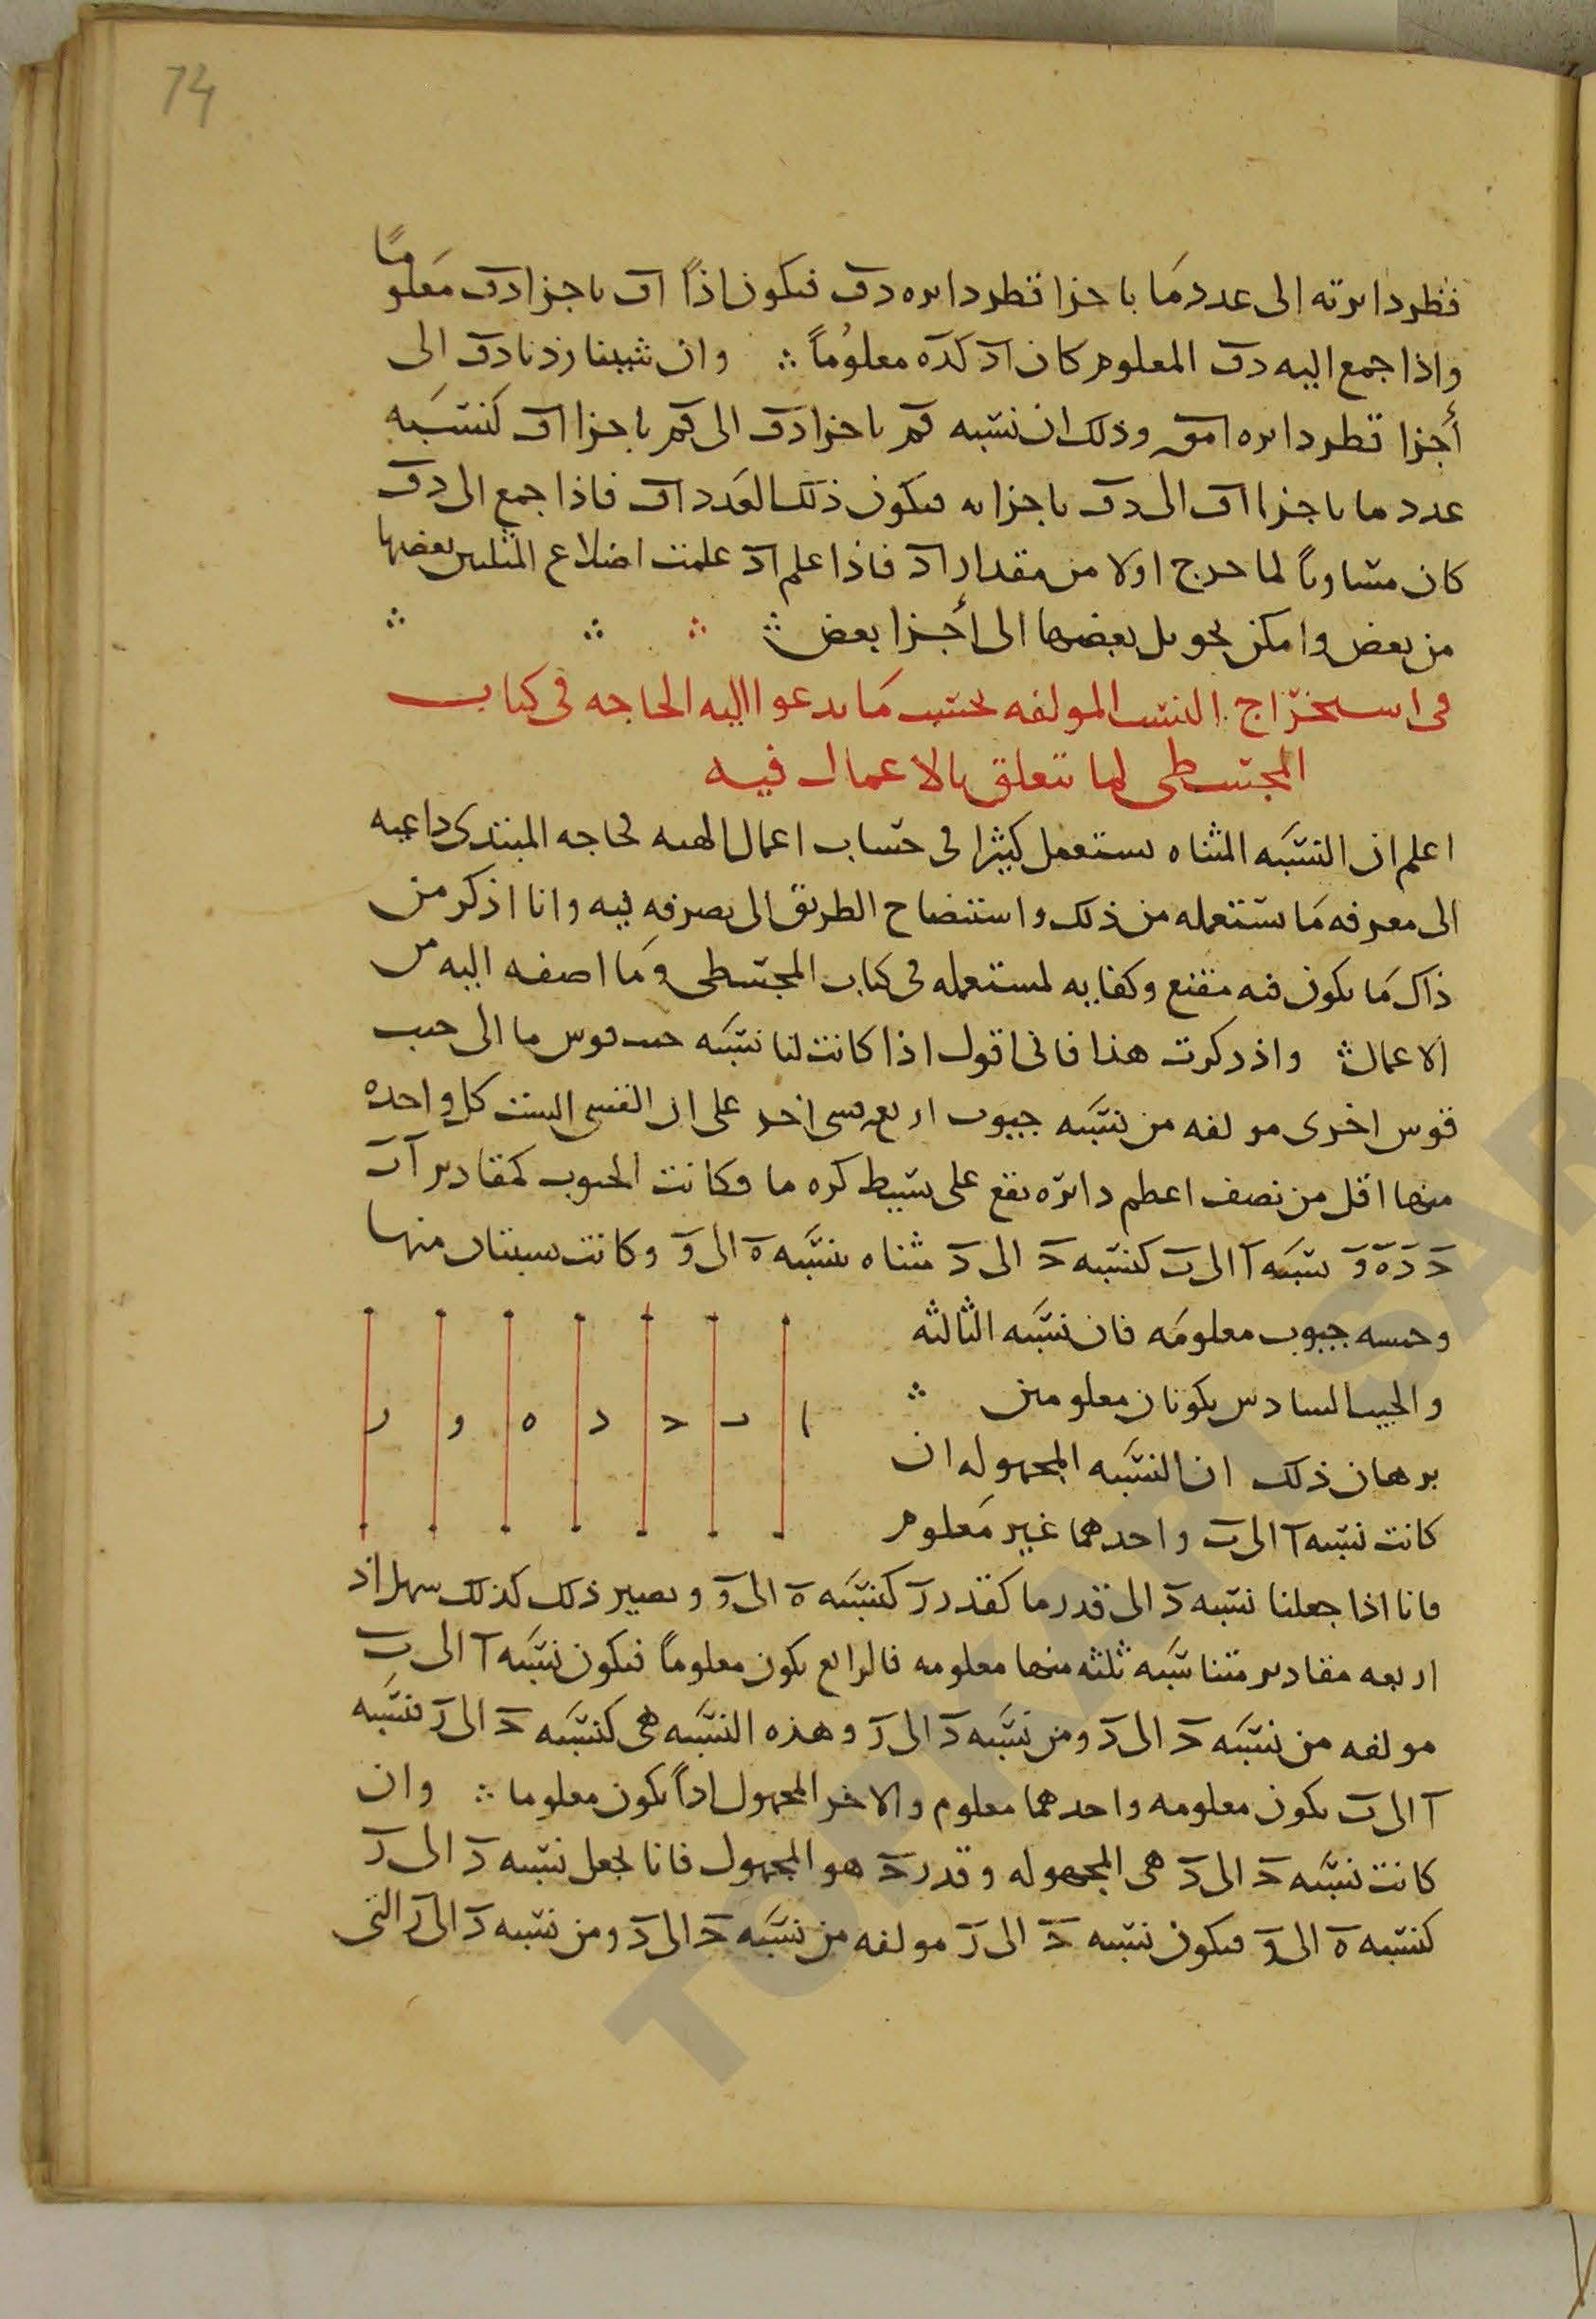 74
قطر دائرته الى عدد ما باجزا قطر دائره دق فيكون اذًا اق باجزا دق معلومًا
واذا جمع اليه دق المعلوم كان اد كده معلوُماً ∴ وان شينا رددنا دق الى
أجزا قطر دائره امق وذلك ان نسبه قم باجزا دق الى قم باجزا اق كنسبه
عدد ما باجزا اق الى دق باجزائه فيكون ذلك العدد اق فاذا جمع الى دق
كان مساوياً لما خرج اولا من مقدار اد فاذا علم اد علمت اضلاع المثلثين بعضها
من بعض وامكن تحويل بعضها الى أجزا بعض ∴ ∴ ∴ ∴
فى استخراج النسب المولفه بحسب ما يدعوا اليه الحاجه فى كتاب
المجسطى لما تتعلق بالاعمال فيه
اعلم ان النسبه المثناه تستعمل كثيرا فى حساب اعمال الهيه فحاجه المبتدى داعيه
الى معرفه ما يستعمله من ذلك واستيضاح الطريق الى تصرفه فيه وانا اذكر من
ذاك ما يكون فيه مقنع وكفايه لمستعمله فى كتاب المجسطى وما اضفه اليه من
الاعمال ∴ واذ ذكرت هذا فانى اقول اذا كانت لنا نسبه جيب قوس ما الى جيب
قوس اخرى مولفه من نسبه جيوب اربع قسى اخر على ان القسى الست كل واحده
منها اقل من نصف اعظم دائره تقع على بسيط كره ما وكانت الجيوب كمقادير آ ب
حَ دَ هَ وَ نسبه آ الى بَ كنسبه حَ الى دَ مثناه بنسبه هَ الى وَ وكانت نسبتان منها
وخمسه جيوب معلومه فان نسبه الثالثه
والجيب السادس يكونان معلومين ∴
برهان ذلك ان النسبه المجهوله ان
كانت نسبه آ الى بَ واحدهما غير معلوم
ا ب ح د ه و ر
فانا اذا جعلنا نسبه دَ الى قدر ما كقدر رَ كنسبه هَ الى وَ ويصير ذلك كذلك سهل اذ
اربعه مقادير متناسبه ثلثه منها معلومه فالرابع يكون معلوماً فتكون نسبه آ الى بَ
مولفه من نسبه حَ الى دَ ومن نسبه دَ الى رَ وهذه النسبه هى كنسبه حَ الى رَ فنسبه
آ الى بَ تكون معلومه واحدهما معلوم والاخر المجهول اذاً يكون معلوما ∴ وان
كانت نسبه حَ الى دَ هى المجهوله وقدر حَ هو المجهول فانا نجعل نسبه دَ الى رَ
كنسبه هَ الى وَ فيكون نسبه حَ الى رَ مولفه من نسبه حَ الى دَ ومن نسبه دَ الى رَ التى